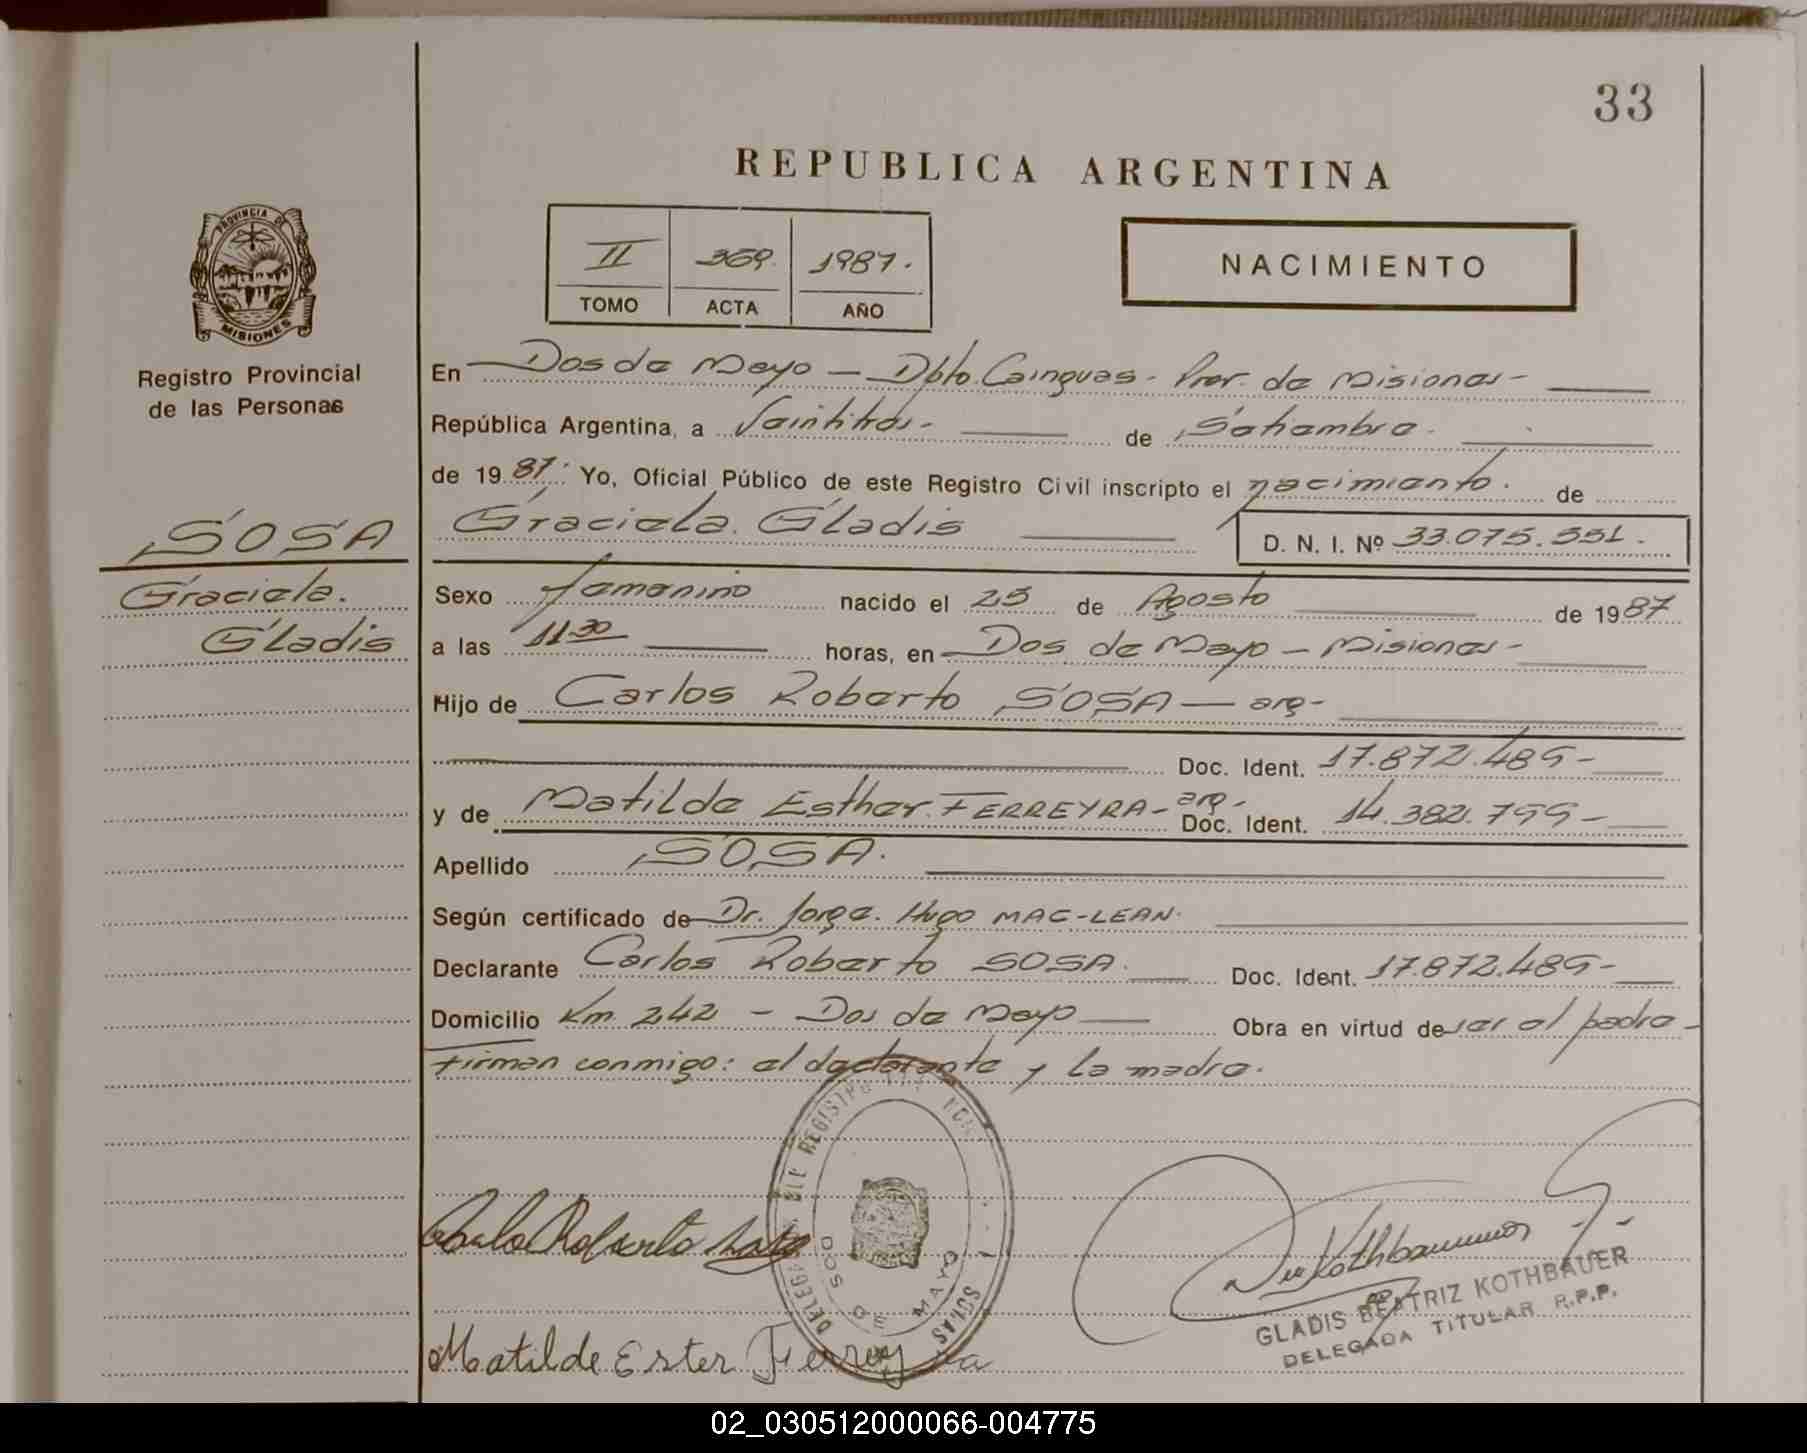 33
REPUBLICA ARGENTINA
PROVINCIA DE
MISIONES
Registro Provincial
de las Personas
II 369. 1987.
TOMO ACTA AÑO
NACIMIENTO
En Dos de Mayo - Dpto. Cainguas - Prov. de Misiones -
República Argentina, a Veintitres - de Setiembre.
de 1987. Yo, Oficial Público de este Registro Civil inscripto el nacimiento. de
SOSA
Graciela.
Gladis
Graciela. Gladis D. N. I. Nº 33.075.551.
Sexo femenino nacido el 25 de Agosto de 1987
a las 11 30 horas, en Dos de Mayo - Misiones -
Hijo de Carlos Roberto SOSA - arg -
Doc. Ident. 17.872.489 -
y de Matilde Esther. FERREYRA - arg - Doc. Ident. 14.382.799 -
Apellido SOSA.
Según certificado de Dr. Jorge. Hugo MAC-LEAN.
Declarante Carlos Roberto SOSA. Doc. Ident. 17.872.489 -
Domicilio Km 242 - Dos de Mayo Obra en virtud de ser el padre -
Firman conmigo: el declarante y la madre.
DOS DE MAYO
Roberto Sosa
Matilde Ester Ferreyra
Kothbauer
GLADIS BEATRIZ KOTHBAUER
DELEGADA TITULAR R.P.P.
02_030512000066-004775